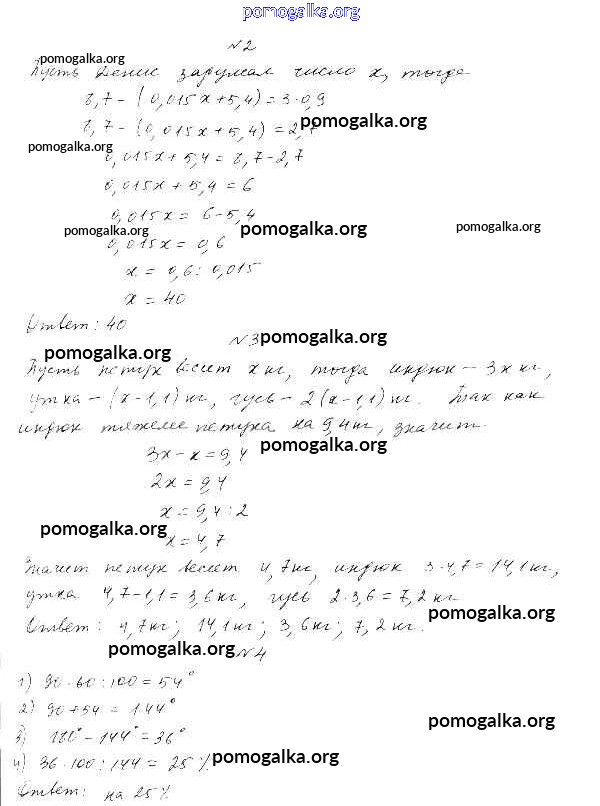 pomogalka.org
№2
pomogalka.org
Пусть Денис задумал число x, тогда
8,7 - (0,015x + 5,4) = 3·0,9
8,7 - (0,015x + 5,4) = 2,7 pomogalka.org
pomogalka.org
0,015x + 5,4 = 8,7 - 2,7
0,015x + 5,4 = 6
0,015x = 6 - 5,4
pomogalka.org pomogalka.org pomogalka.org
0,015x = 0,6
x = 0,6 : 0,015
x = 40
Ответ: 40
№3 pomogalka.org
pomogalka.org
Пусть петух весит x кг, тогда индюк - 3x кг,
утка - (x - 1,1) кг, гусь - 2(x - 1,1) кг. Так как
индюк тяжелее петуха на 9,4 кг, значит.
pomogalka.org
3x - x = 9,4
2x = 9,4
x = 9,4 : 2
pomogalka.org
x = 4,7
Значит петух весит 4,7 кг, индюк 3·4,7 = 14,1 кг,
утка 4,7 - 1,1 = 3,6 кг, гусь 2·3,6 = 7,2 кг
pomogalka.org
Ответ: 4,7 кг; 14,1 кг; 3,6 кг; 7,2 кг.
pomogalka.org №4
1) 90·60:100 = 54°
2) 90 + 54 = 144°
pomogalka.org
3) 180° - 144° = 36°
4) 36·100:144 = 25% pomogalka.org
Ответ: на 25%